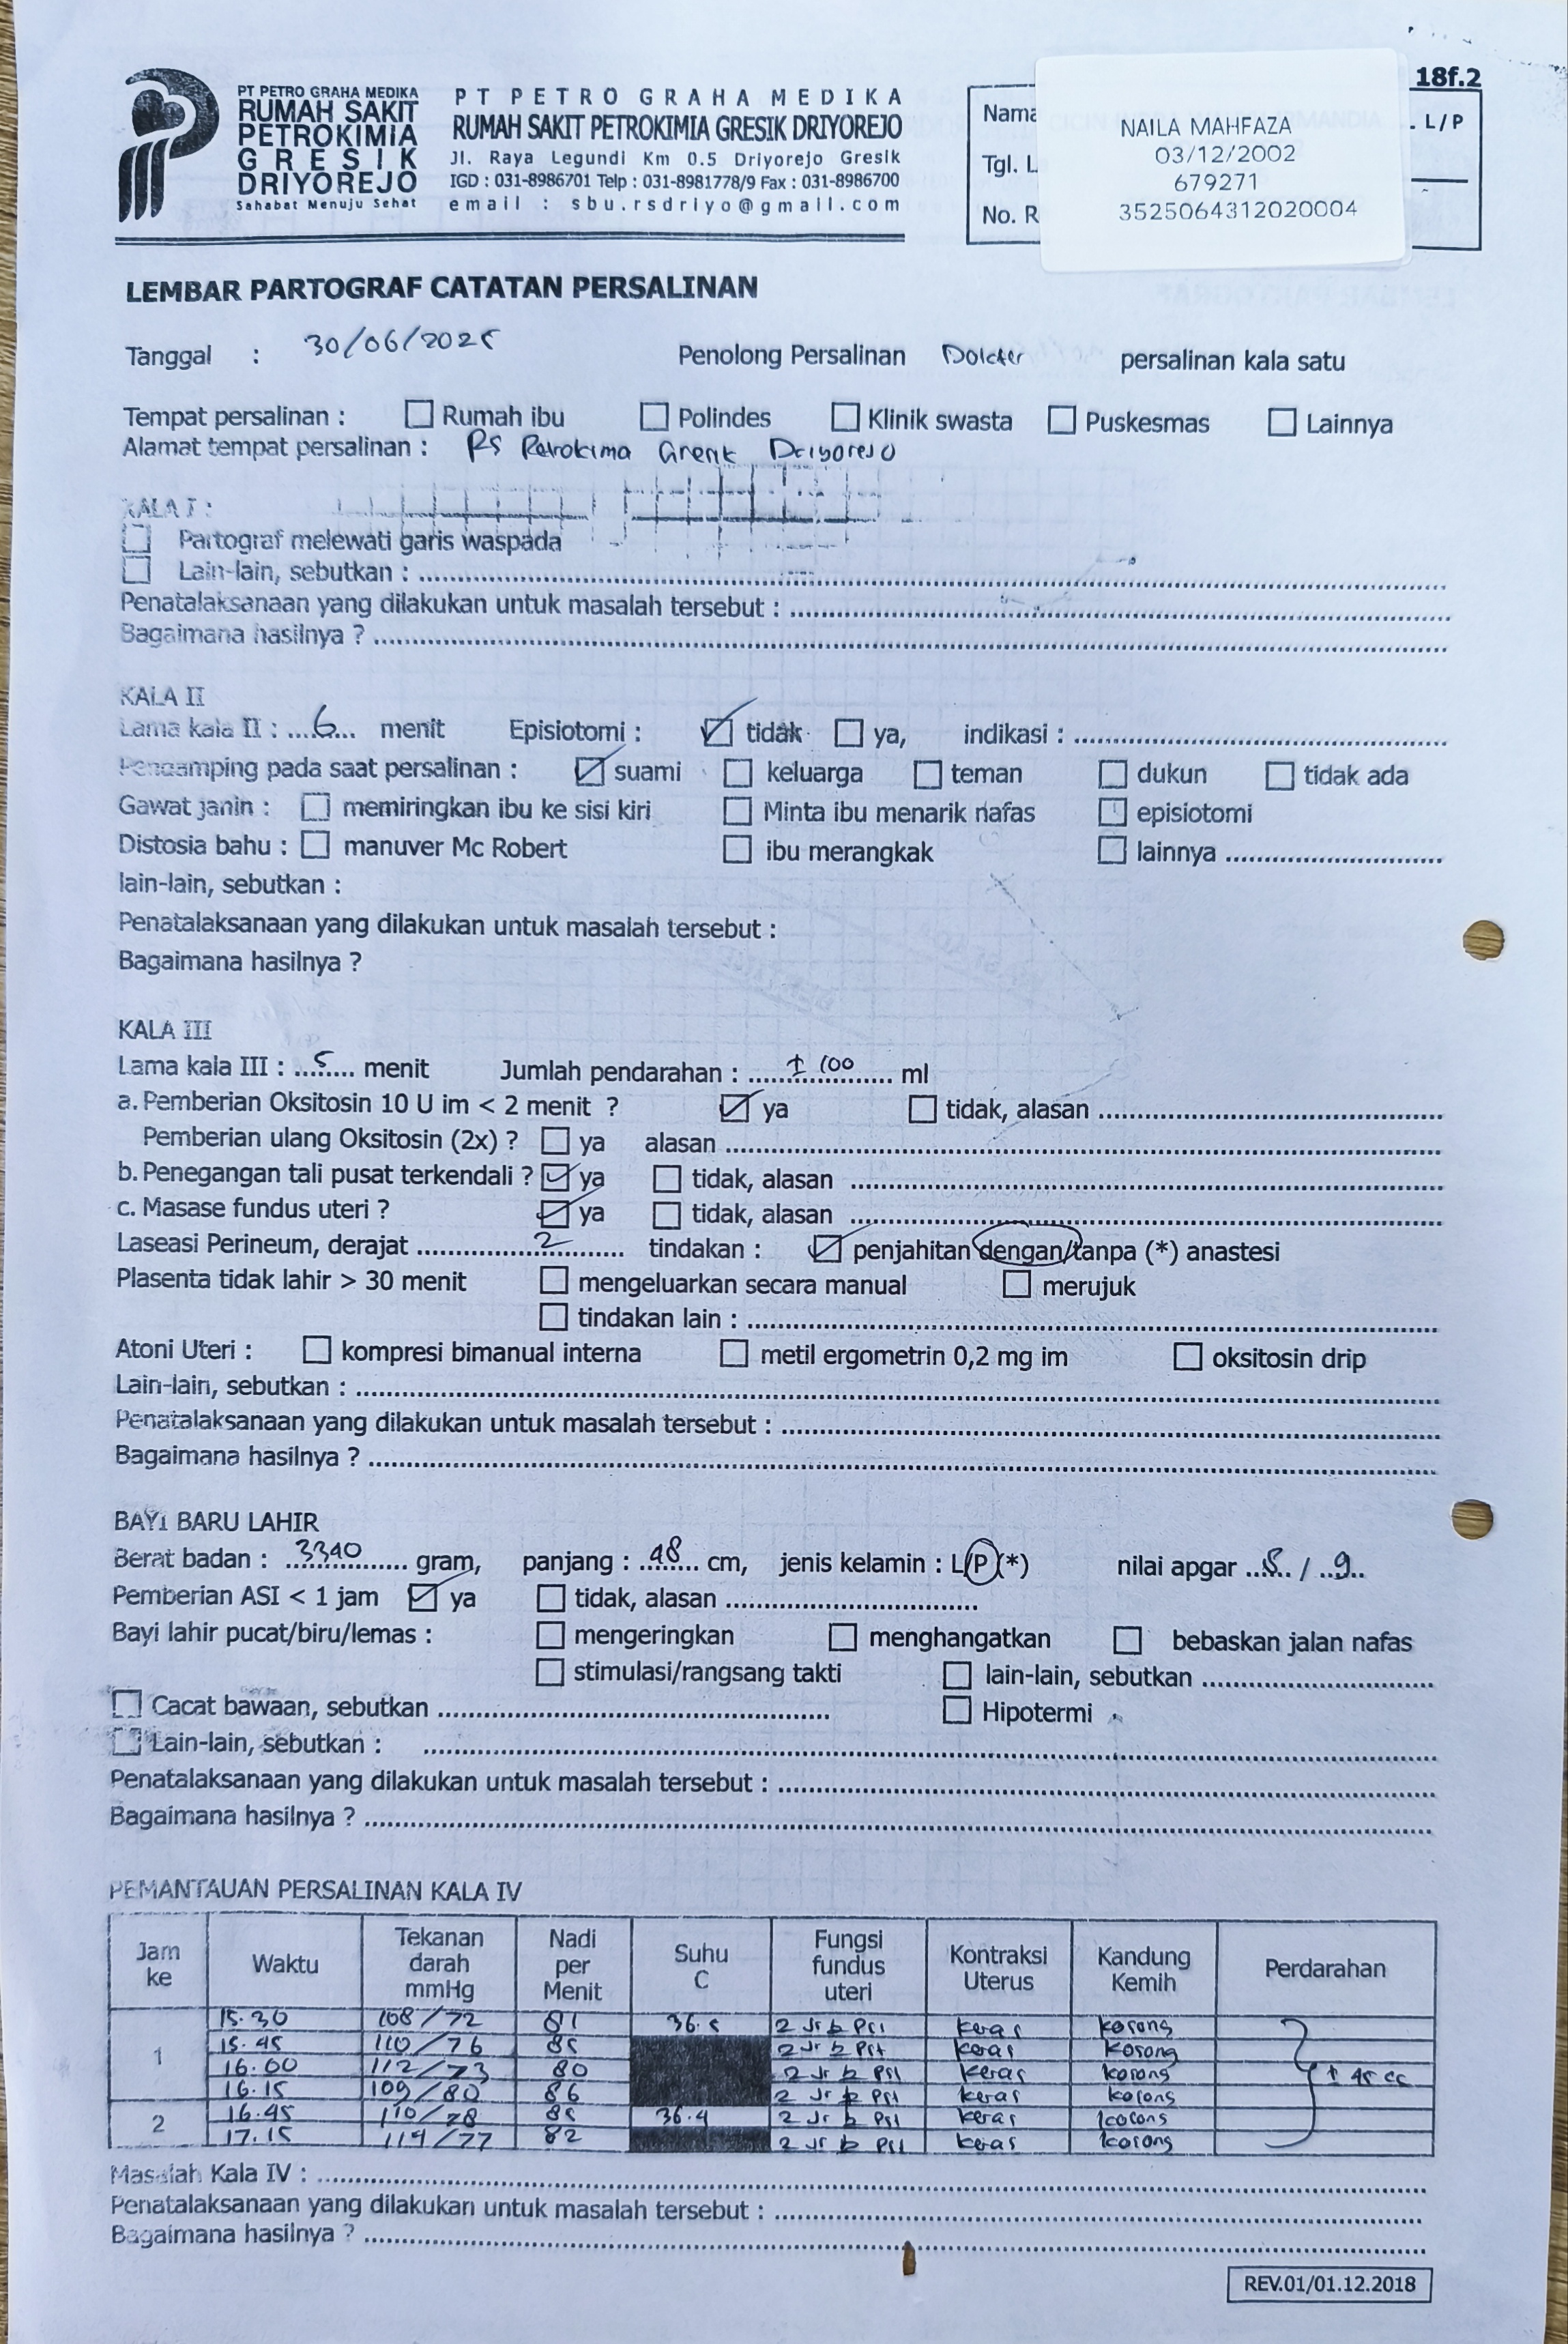 18f.2
PT PETRO GRAHA MEDIKA
RUMAH SAKIT
PETROKIMIA
GRESIK
DRIYOREJO
Sahabat Menuju Sehat
PT PETRO GRAHA MEDIKA
RUMAH SAKIT PETROKIMIA GRESIK DRIYOREJO
Jl. Raya Legundi Km 0.5 Driyorejo Gresik
IGD : 031-8986701 Telp : 031-8981778/9 Fax : 031-8986700
email : sbu.rsdriyo@gmail.com
Nama L / P
Tgl. L
No. R
NAILA MAHFAZA
03/12/2002
679271
3525064312020004
LEMBAR PARTOGRAF CATATAN PERSALINAN
Tanggal : 30/06/2025 Penolong Persalinan Dokter persalinan kala satu
Tempat persalinan : Rumah ibu Polindes Klinik swasta Puskesmas Lainnya
Alamat tempat persalinan : RS Petrokima Gresik Driyorejo
KALA I :
Partograf melewati garis waspada
Lain-lain, sebutkan :
Penatalaksanaan yang dilakukan untuk masalah tersebut :
Bagaimana hasilnya ?
KALA II
Lama kala II : 6 menit Episiotomi : ☑ tidak ya, indikasi :
Pengamping pada saat persalinan : ☑ suami keluarga teman dukun tidak ada
Gawat janin : memiringkan ibu ke sisi kiri Minta ibu menarik nafas episiotomi
Distosia bahu : manuver Mc Robert ibu merangkak lainnya
lain-lain, sebutkan :
Penatalaksanaan yang dilakukan untuk masalah tersebut :
Bagaimana hasilnya ?
KALA III
Lama kala III : 5 menit Jumlah pendarahan : ± 100 ml
a. Pemberian Oksitosin 10 U im < 2 menit ? ☑ ya tidak, alasan
Pemberian ulang Oksitosin (2x) ? ya alasan
b. Penegangan tali pusat terkendali ? ☑ ya tidak, alasan
c. Masase fundus uteri ? ☑ ya tidak, alasan
Laseasi Perineum, derajat 2 tindakan : ☑ penjahitan dengan/tanpa (*) anastesi
Plasenta tidak lahir > 30 menit mengeluarkan secara manual merujuk
tindakan lain :
Atoni Uteri : kompresi bimanual interna metil ergometrin 0,2 mg im oksitosin drip
Lain-lain, sebutkan :
Penatalaksanaan yang dilakukan untuk masalah tersebut :
Bagaimana hasilnya ?
BAYI BARU LAHIR
Berat badan : 3340 gram, panjang : 48 cm, jenis kelamin : L/P (*) nilai apgar 8 / 9
Pemberian ASI < 1 jam ☑ ya tidak, alasan
Bayi lahir pucat/biru/lemas : mengeringkan menghangatkan bebaskan jalan nafas
stimulasi/rangsang takti lain-lain, sebutkan
Cacat bawaan, sebutkan Hipotermi
Lain-lain, sebutkan :
Penatalaksanaan yang dilakukan untuk masalah tersebut :
Bagaimana hasilnya ?
PEMANTAUAN PERSALINAN KALA IV
Jam ke Waktu Tekanan darah mmHg Nadi per Menit Suhu C Fungsi fundus uteri Kontraksi Uterus Kandung Kemih Perdarahan
1 15.30 108/72 81 36.5 2 Jr b Pst keras kosong
15.45 110/76 85 2 Jr b Pst keras kosong
16.00 112/73 80 2 Jr b Pst keras kosong ± 45 cc
16.15 109/80 86 2 Jr b Pst keras kosong
2 16.45 110/78 85 36.4 2 Jr b Pst keras kosong
17.15 114/77 82 2 Jr b Pst keras kosong
Masalah Kala IV :
Penatalaksanaan yang dilakukan untuk masalah tersebut :
Bagaimana hasilnya ?
REV.01/01.12.2018